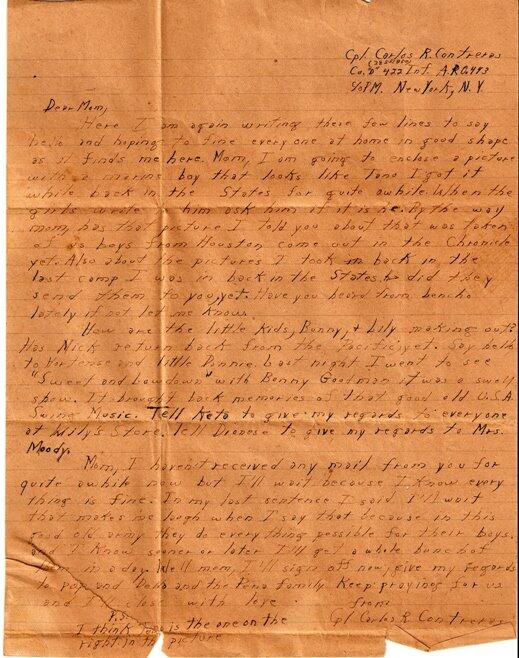 Cpl. Carlos R. Contreras
Co. "D" 422 Inf. A.P.O. 443
℅ P.M. New York, N.Y
Dear Mom,
Here I am again writing these few lines to say
hello and hoping to fine everyone at home in good shape
as it finds me here. Mom, I am going to enclose a picture
with a marine boy that looks like Tano I got it
while back in the States for quite awhile. When the
girls wrote him ask him if it is he. By the way
mom, has that picture I told you about that was taken
of us boys from Houston come out in the Chronicle
yet. Also about the pictures I took in back in the
last camp I was in back in the States, did they
send them to you, yet. Have you heard from
lately if not let me know.
How are the little Kids, Benny, & Lily making out?
Has Nick return back from the Pacific yet. Say hello
to Hortense and little Donnie. Last night I went to see
"Sweet and Lowdown" with Benny Goodman it was a swell
show. It brought back memories of that good old U.S.A
Swing Music. Tell Keta to give my regards to everyone
at Lily's Store. Tell Dionese to give my regards to Mrs.
Moody.
Mom, I haven't received any mail from you for
quite awhile now but I'll wait because I know every
thing is fine. In my last sentence I said I'll wait
that makes me laugh when I say that because in this
good old army they do everything possible for their boys.
and I Know sooner or later I'll get a whole bunch of
them in a day. Well mom, I'll sign off now, give my regards
to pop and and the Pena family. Keep praying for us
and I close with love from
P.S. Cpl Carlos R. Contreras
I think Tano is the one on the
right. In the picture